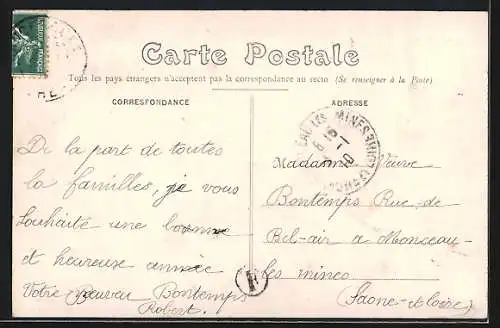 Carte Postale
Tous les pays étrangers n'acceptent pas la correspondance au recto (Se renseigner à la Poste)
CORRESPONDANCE
De la part de toutes
la familles, je vous
souhaite une bonne
et heureuse année
Votre Bontemps
Robert.
ADRESSE
LES MINES
Madame Veuve
Bontemps Rue-de
Bel-air a Monceau-
les mines
(Saone-et-Loire)